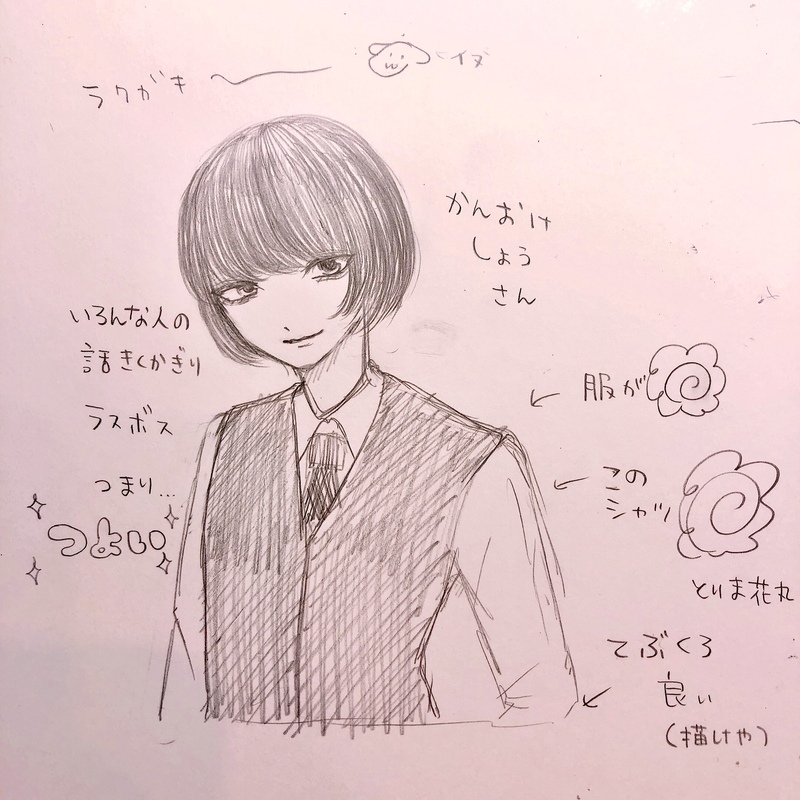 ラクガキ
イヌ
かんおけ
しょう
さん
いろんな人の
話きくかぎり
ラスボス
つまり…
つよい
服が
この
シャツ
とりま花丸
てぶくろ
良い
(描けや)